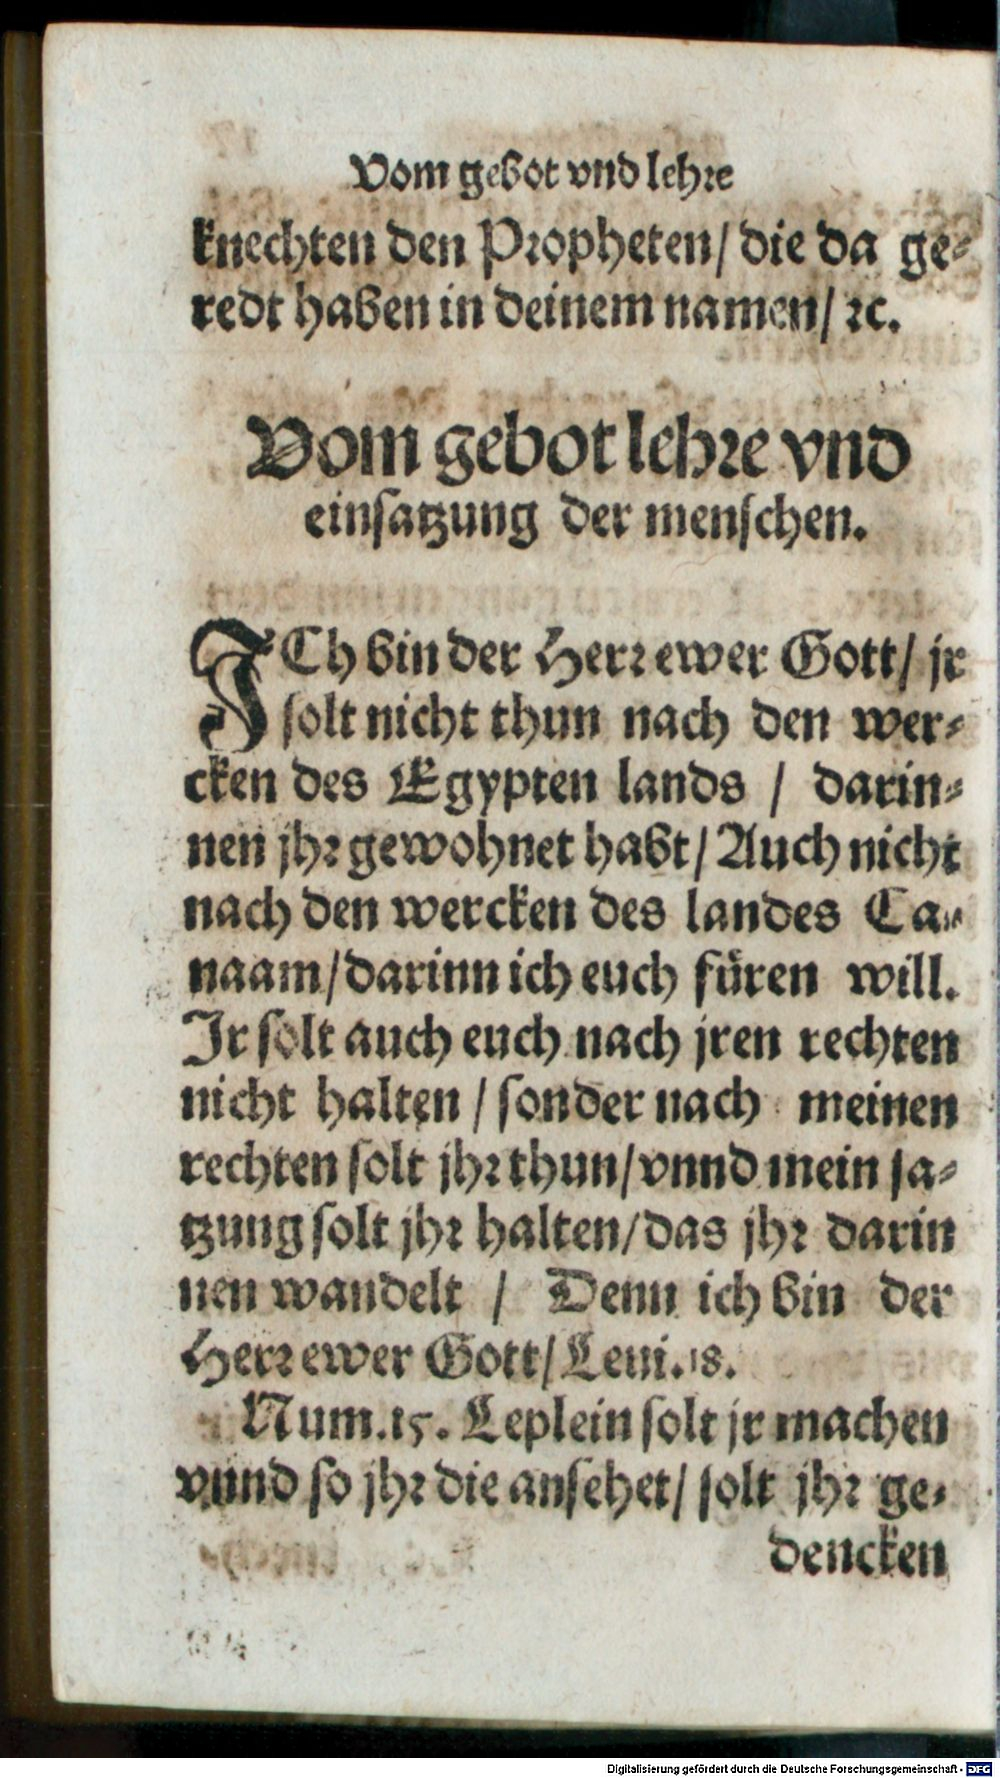 Vom gebot vnd lehre
knechten den Propheten/ die da ge-
redt haben in deinem namen/ ꝛc.
Vom gebot lehre vnd
einsatzung der menschen.
ICh bin der Herr ewer Gott/ jr
solt nicht thun nach den wer-
cken des Egypten lands / darin-
nen jhr gewohnet habt/ Auch nicht
nach den wercken des landes Ca-
naam/ darinn ich euch füren will.
Ir solt auch euch nach jren rechten
nicht halten / sonder nach meinen
rechten solt jhr thun/ vnnd mein sa-
tzung solt jhr halten/ das jhr darin
nen wandelt / Denn ich bin der
Herr ewer Gott/ Leui.18.
Num.15. Leplein solt jr machen
vnnd so jhr die ansehet/ solt jhr ge-
dencken
Digitalisierung gefördert durch die Deutsche Forschungsgemeinschaft - DFG